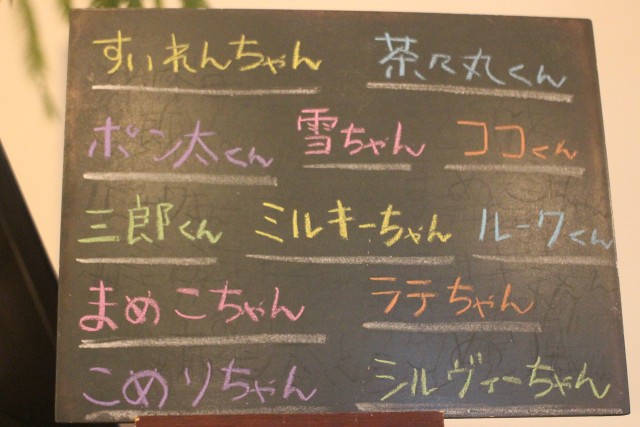 すいれんちゃん 茶々丸くん
ポン太くん 雪ちゃん ココくん
三郎くん ミルキーちゃん ルークくん
まめこちゃん ラテちゃん
こめりちゃん シルヴィーちゃん